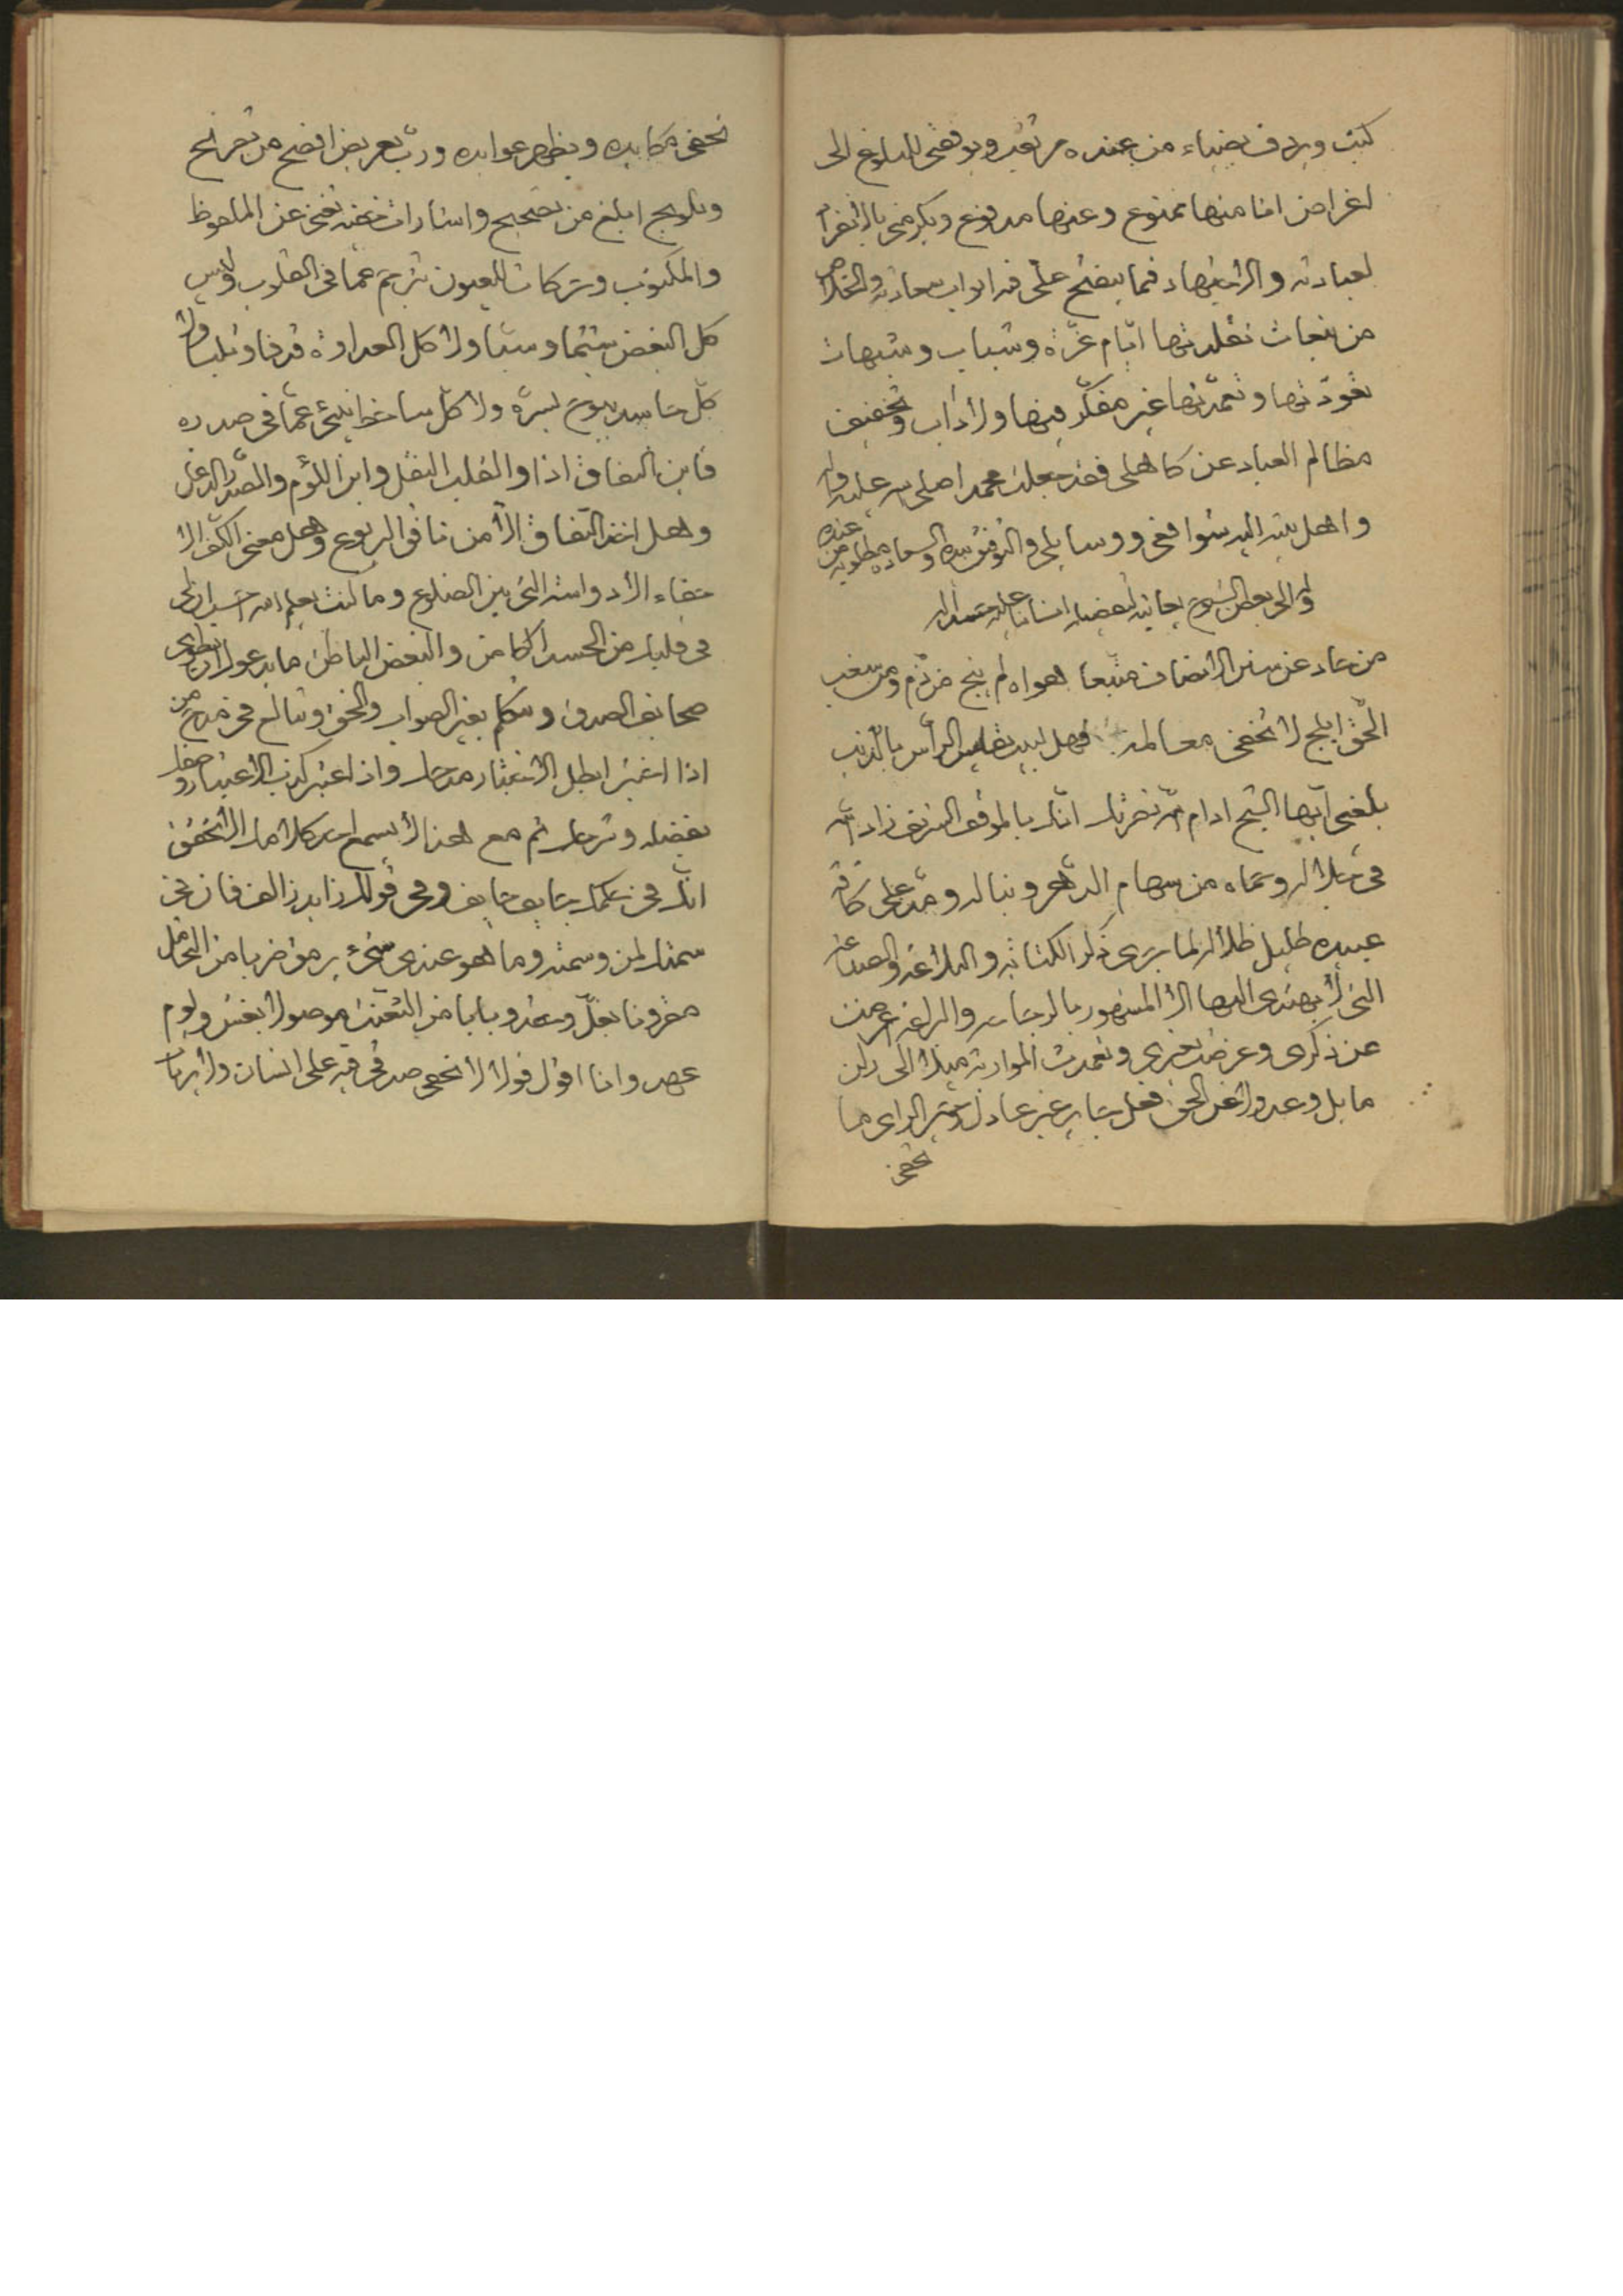 كتب ويردف بضياء من عنده من تغير ويوفقني للبلوغ الى
اغراض انا منها ممنوع وعنها مدفوع ويكرمني بالانفراد
لعبادته والاجتهاد فيما يفتح علي فيه ابواب سعادته والخلاص
من تبعات تقلدتها ايام غرة وشباب وشبهات
تعودتها وتعمدتها غير مفكر فيها ولا داب وتخفيف
مظالم العباد عن كاهلي فقد جعلت محمدا صلى الله عليه وآله
واهل بيته اليه شوافعي ووسايلي والتوفيق بيده والسعادة مطلوبة من عنده
وله الى بعض الشيوخ يعاتبه
من حاد عن سنن الانصاف متبعا هواه لم ينج من ذم ومن شغب
الحق ابلج لا تخفى معالمه فهل لبيب يقيس الرأس بالذنب
بلغني ايها الشيخ ادام الله نضرتك انك بالموقف الشريف زاد الله
في جلاله وحماه من سهام الدهر ونباله ومد على كافة
عبيده ظليل ظلاله لما جرى ذكر الكتابة والبلاغة والصناعة
التي لا يهتدي اليها الا المشهور بالرجاحة والبراعة اعرضت
عن ذكري وعرضت بغيري وتعمدت المواربة ميلا الى
مايل وعدولا عن الحق فعل جاير غير عادل وشر الراي ما
تخفى
تخفى مكايده ويظهر عوايده ورب تعريض افصح من تصريح
وتلويح ابلغ من تصحيح واشارات خفية تغني عن الملحوظ
والمكتوب وحركات للعيون تترجم عما في القلوب وليس
كل البغض شتما وسبا ولا كل العداوة قذفا وثلبا ولا
كل حاسد يبوح بسره ولا كل ساخط ينبئ عما في صدره
فاين النفاق اذا والقلب النغل واين اللؤم والصدر الدغل
وهل اخذ النفاق الا من نافق اليربوع وهل معنى الكفر الا
خفاء الادواء التي بين الضلوع وما كنت يعلم الله احسب ان
في قلبك من الحسد الكامن والبغض الباطن ما يدعوك ان تطوي
صحايف الصدق وتتكلم بغير الصواب والحق وتبالغ في مدح من
اذا اختبر ابطل الاختبار مدحك واذا اعتبر كذب الاعتبار وصفك
بفضله وشرحك ثم مع هذا لا يسمع احد كلامك الا تحقق
انك في حكمك حايف جانف وفي قولك زايد زالف فان نحن
سمتك لمن وسمته وما هو عندي بشيء يرمق ضربا من التحامل
مقرونا بغل وحقد وبابا من التعنت موصولا بغش ولوم
عهد وانا اقول قولا لا تخفى صدقي فيه على انسان ولا يرتاب